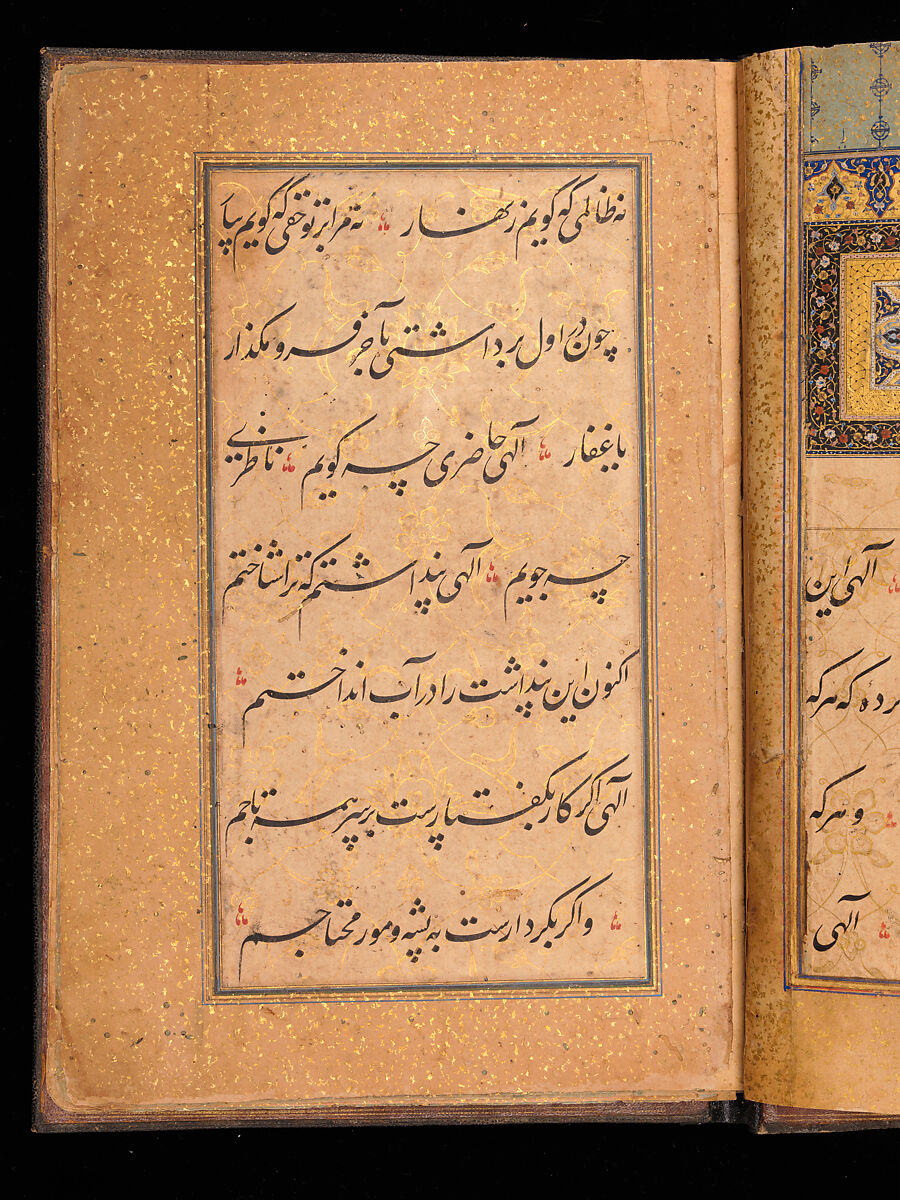 نه ظالمی که کویم زنهار نه مرا بر تو حقی که کویم بیا
چون در اول برداشتی بآخر فرو مکذار
یا غفار الهی حاضری چه کویم ناظری
چه جویم الهی پنداشتم که ترا شناختم
اکنون این پنداشت را در آب انداختم
الهی اکر کار بکفتار است بر سر همه تاجم
و اکر بکردار است به پشه و مور محتاجم
الهی این
که هرکه
و هرکه
الهی